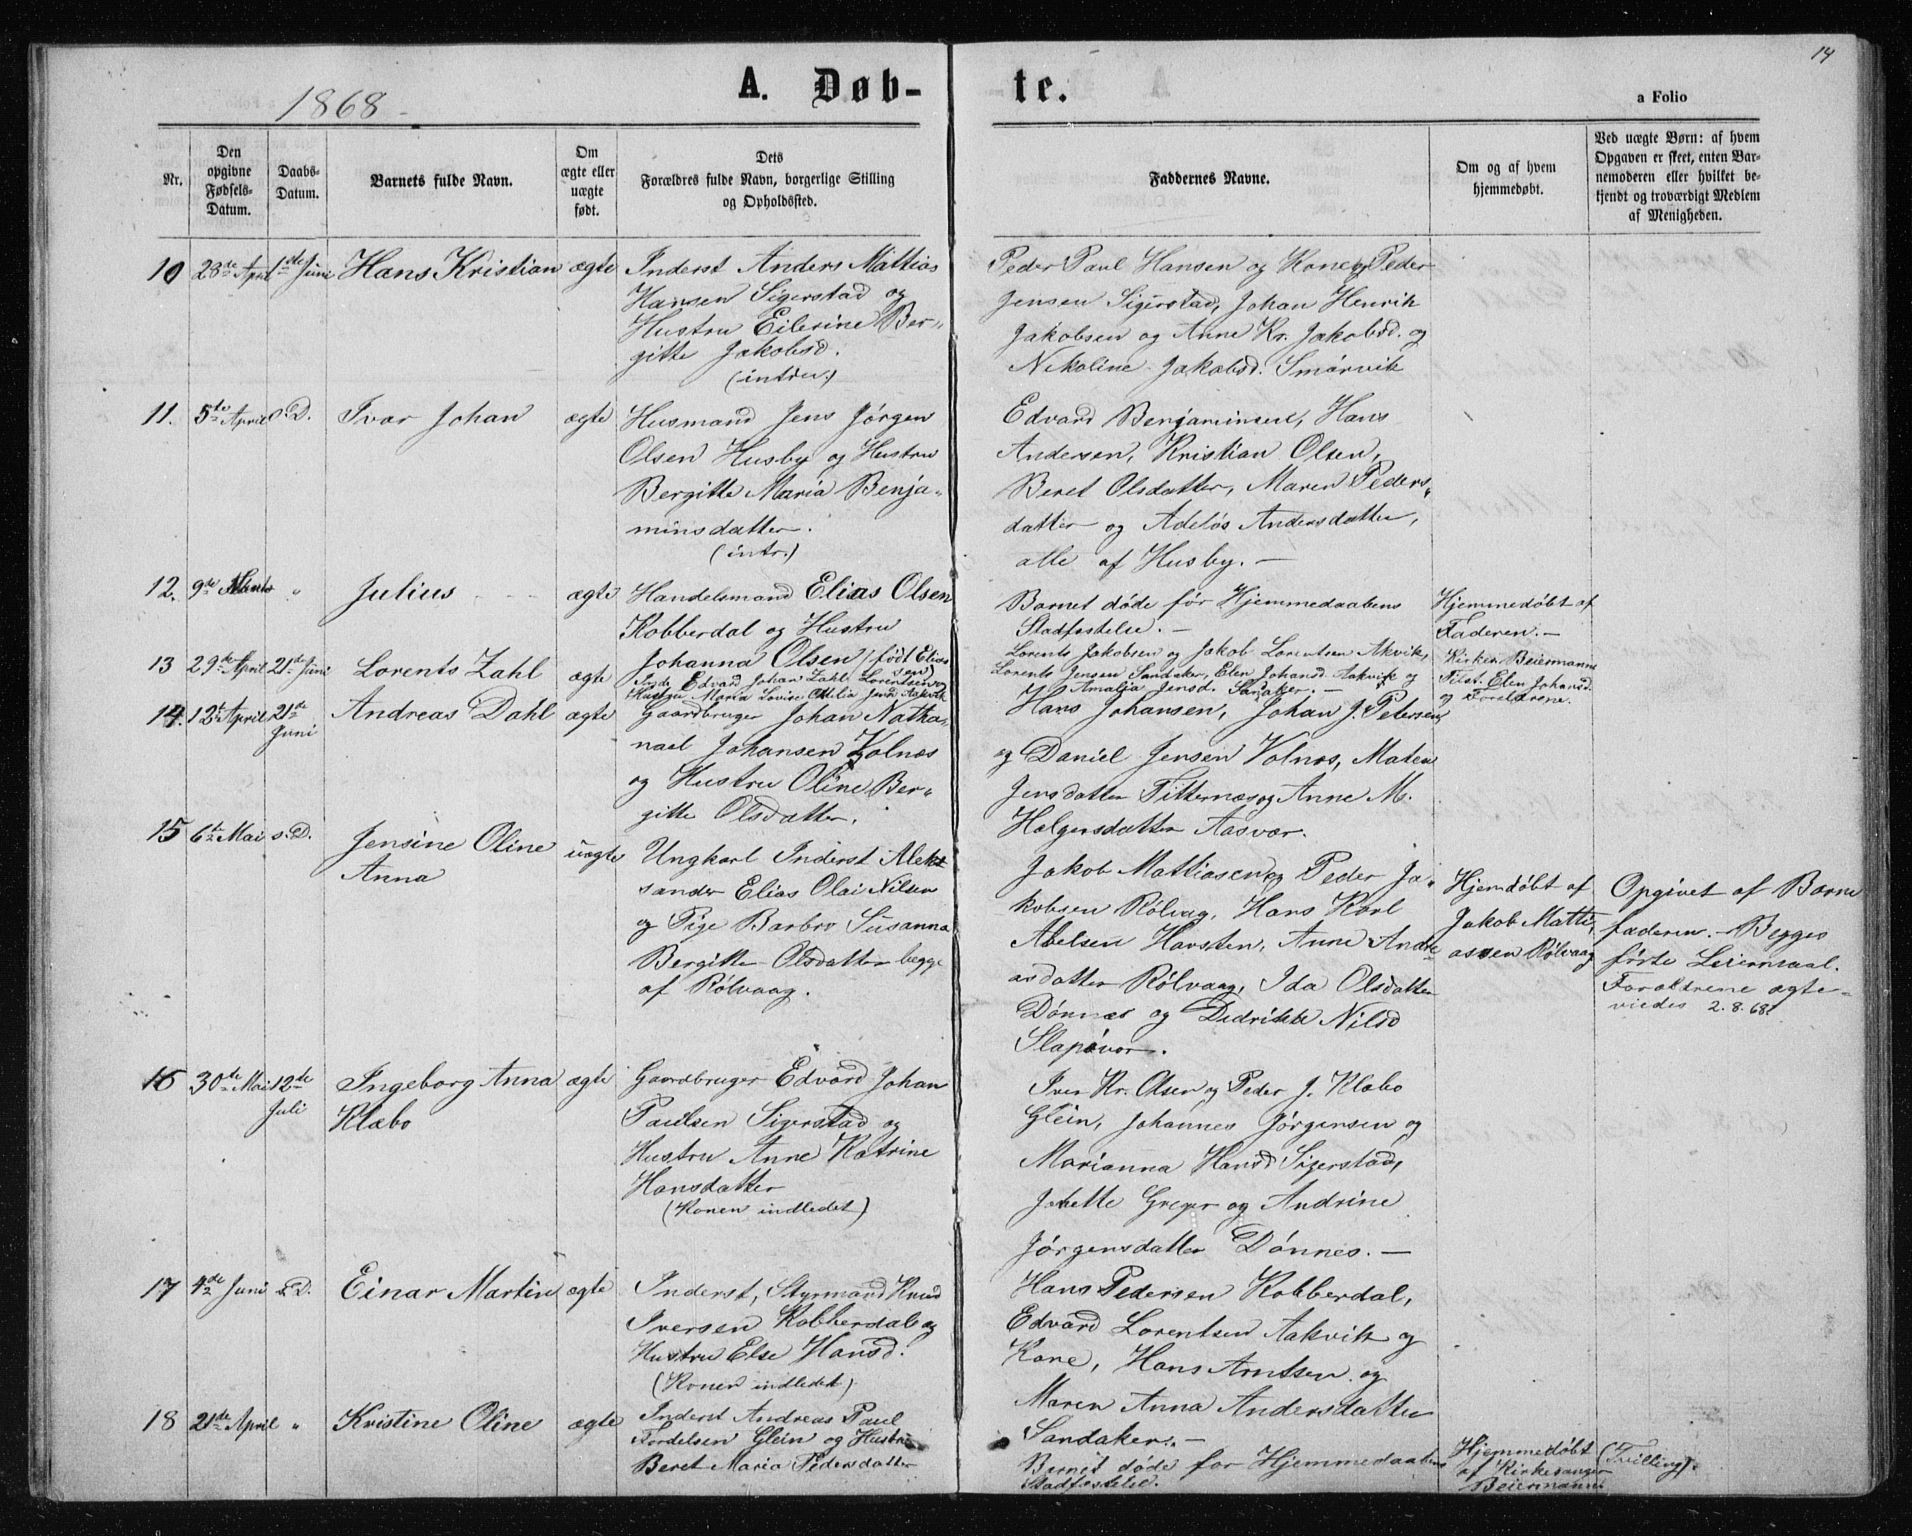 14
1868 -
A. Døb-
te.
a Folio
Nr.
Den opgivne Fødsels-Datum.
Daabs-Datum.
Barnets fulde Navn.
Om ægte eller uægte født.
Dets
Forældres fulde Navn, borgerlige Stilling
og Opholdssted.
Faddernes Navne.
Om og af hvem
hjemmedøbt.
Ved uægte Børn: af hvem
Opgaven er skeet, enten Bar-
nemoderen eller hvilket be-
kjendt og troværdigt Medlem
af Menigheden.
10 28de April 1ste Juni Hans Kristian ægte
Inderst Anders Mattias
Hansen Sigerstad og
Hustru Eilerine Ber-
gitte Jakobsd.
(introd.)
Peder Paul Hansen og Kone og Peder
Jensen Sigerstad, Johan Henrik
Jakobsen og Anne Kr. Jakobsd. og
Nikoline Jakobsd. Smørvik
11. 5te April s. D. Ivar Johan ægte
Husmand Jens Jørgen
Olsen Husby og Hustru
Bergitte Maria Benja-
minsdatter.
(intr.)
Edvard Benjaminsen, Hans
Andersen, Kristian Olsen,
Beret Olsdatter, Maren Peders-
datter og Adeløs Andersdatter,
alle af Husby. -
12. 9de Marts " Julius ægte
Handelsmand Elias Olsen
Kobberdal og Hustru
Johanna Olsen (født Elias
sen)
Barnet døde før Hjemmedaabens
Stadfæstelse. -
Hjemmedøbt af
Faderen. -
13 29de April 21de Juni Lorents Zahl ægte
Inds. Edvard Johan Zahl Lorentsen og
Hustru Maria Lovise Otilia Jensd Aakvik
Lorents Jakobsen og Jakob Lorentsen Akvik,
Lorents Jensen Sandaker, Elen Johansd. Aakvik og
Amalia Jensd. Sandaker. -
Kirkes. Beiermanns
Tilst. Elen Johansd.
og Forældrene.
14. 12te April 21de Juni Andreas Dahl ægte
Gaardbruger Johan Natha-
nael Johansen Volnæs
og Hustru Oline Ber-
gitte Olsdatter.
Hans Johansen, Johan J. Petersen
og Daniel Jensen Volnæs, Maten
Jensdatter Titternæs og Anne M.
Holgersdatter Aasvær.
15 6te Mai s. D. Jensine Oline
Anna
uægte
Ungkarl Inderst Alek
sander Elias Olai Nilsen
og Pige Barbro Susanna
Bergitte Olsdatter begge
af Rølvaag.
Jakob Mattiasen og Peder Ja-
kobsen Rølvag, Hans Karl
Abelsen Harsten, Anne Andre
asdatter Rølvaag, Ida Olsdatter
Dønnæs og Didrikke Nilsd
Slapøvær.
Hjemdøbt af
Jakob Matti-
assen Rølvaag
Opgivet af Barne
faderen. - Begges
første Leiermaal.
Foræltrene ægte-
viedes 2.8.68.
16 30te Mai 12te Juli Ingeborg Anna
Klæbo
ægte
Gaardbruger Edvard Johan
Paulsen Sigerstad og
Hustru Anne Katrine
Hansdatter
(Konen indledet)
Iver Kr. Olsen og Peder J. Klæbo
Glein, Johannes Jørgensen og
Marianna Hansd Sigerstad,
Jonette Greger og Andrine
Jørgensdatter Dønnes. -
17 4de Juni s. D. Einar Martin ægte
Inderst, Styrmand Knud
Iversen Kobberdal og
Hustru Else Hansd.
(Konen indledet)
Hans Pedersen Kobberdal,
Edvard Lorentsen Aakvik og
Kone, Hans Arntsen og
Maren Anna Andersdatter
Sandaker. -
18 21de April " Kristine Oline ægte
Inderst Andreas Paul
Tordelsen Glein og Hustru
Beret Maria Pedersdatter
Barnet døde før Hjemmedaabens
Stadfæstelse.
Hjemmedøbt
af Kirkesanger
Beiermann
(Tvilling).